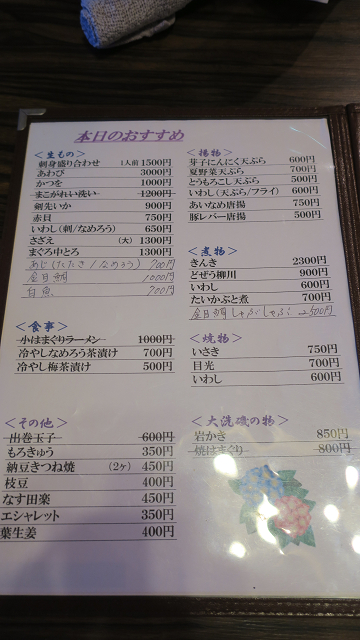 本日のおすすめ
＜生もの＞
刺身盛り合わせ 1人前 1500円
あわび 3000円
かつを 1000円
まこがれい洗い 1200円
剣先いか 900円
赤貝 750円
いわし（刺/なめろう） 650円
さざえ （大） 1300円
まぐろ中とろ 1300円
あじ（たたき/なめろう） 700円
金目鯛 1000円
白魚 700円
＜食事＞
小はまぐりラーメン 1000円
冷やしなめろう茶漬け 700円
冷やし梅茶漬け 500円
＜その他＞
出巻玉子 600円
もろきゅう 350円
納豆きつね焼 （2ヶ） 450円
枝豆 400円
なす田楽 450円
エシャレット 350円
葉生姜 400円
＜揚物＞
芽子にんにく天ぷら 600円
夏野菜天ぷら 700円
とうもろこし天ぷら 500円
いわし（天ぷら/フライ） 600円
あいなめ唐揚 750円
豚レバー唐揚 500円
＜煮物＞
きんき 2300円
どぜう柳川 900円
いわし 600円
たいかぶと煮 700円
金目鯛しゃぶしゃぶ 2500円
＜焼物＞
いさき 750円
目光 700円
いわし 600円
＜大洗磯の物＞
岩かき 850円
焼はまぐり 800円